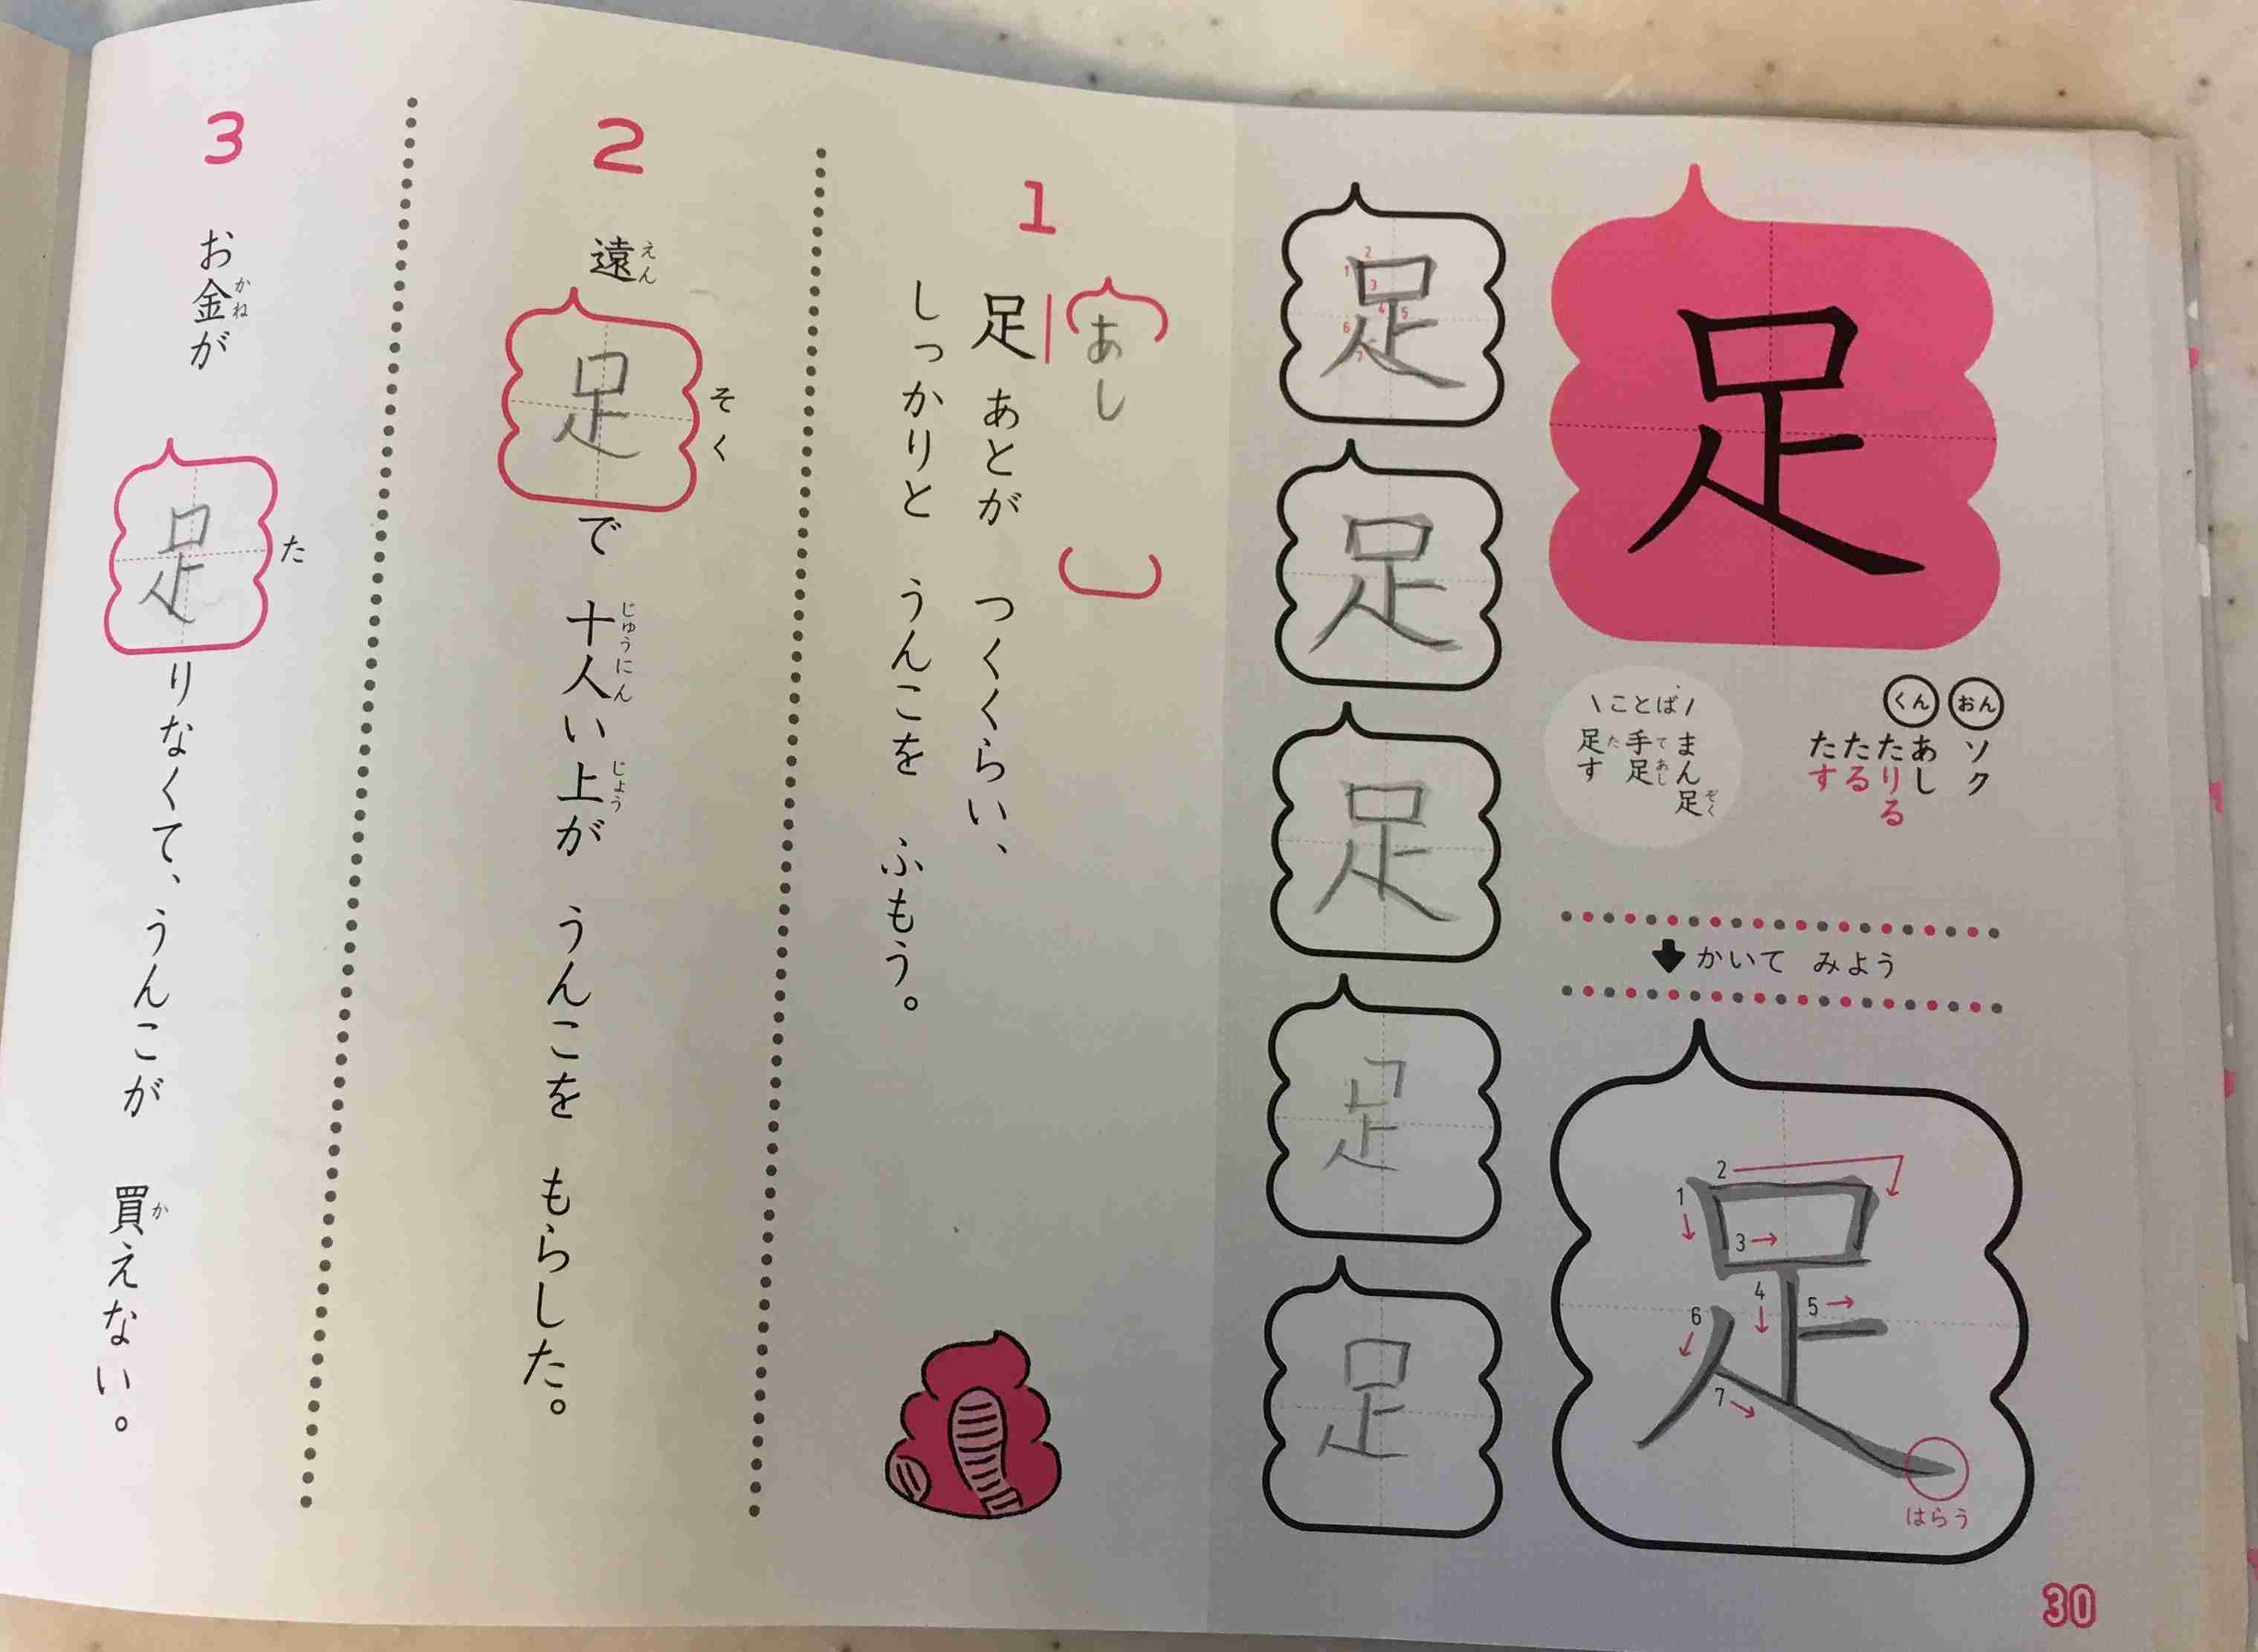 足
おん ソク
くん あし
たりる
たる
たす
\ことば/
まん足
ぞく
手足
てあし
足す
た
かいて みよう
1
2
3
4
5
6
7
足
はらう
30
1
2
3
4
5
6
7
足
足
足
足
足
1
あし
足あとが つくくらい、
しっかりと うんこを ふもう。
2
そく
遠足で 十人い上が うんこを もらした。
えん
じゅうにん
じょう
3
た
お金が 足りなくて、うんこが 買えない。
かね
か